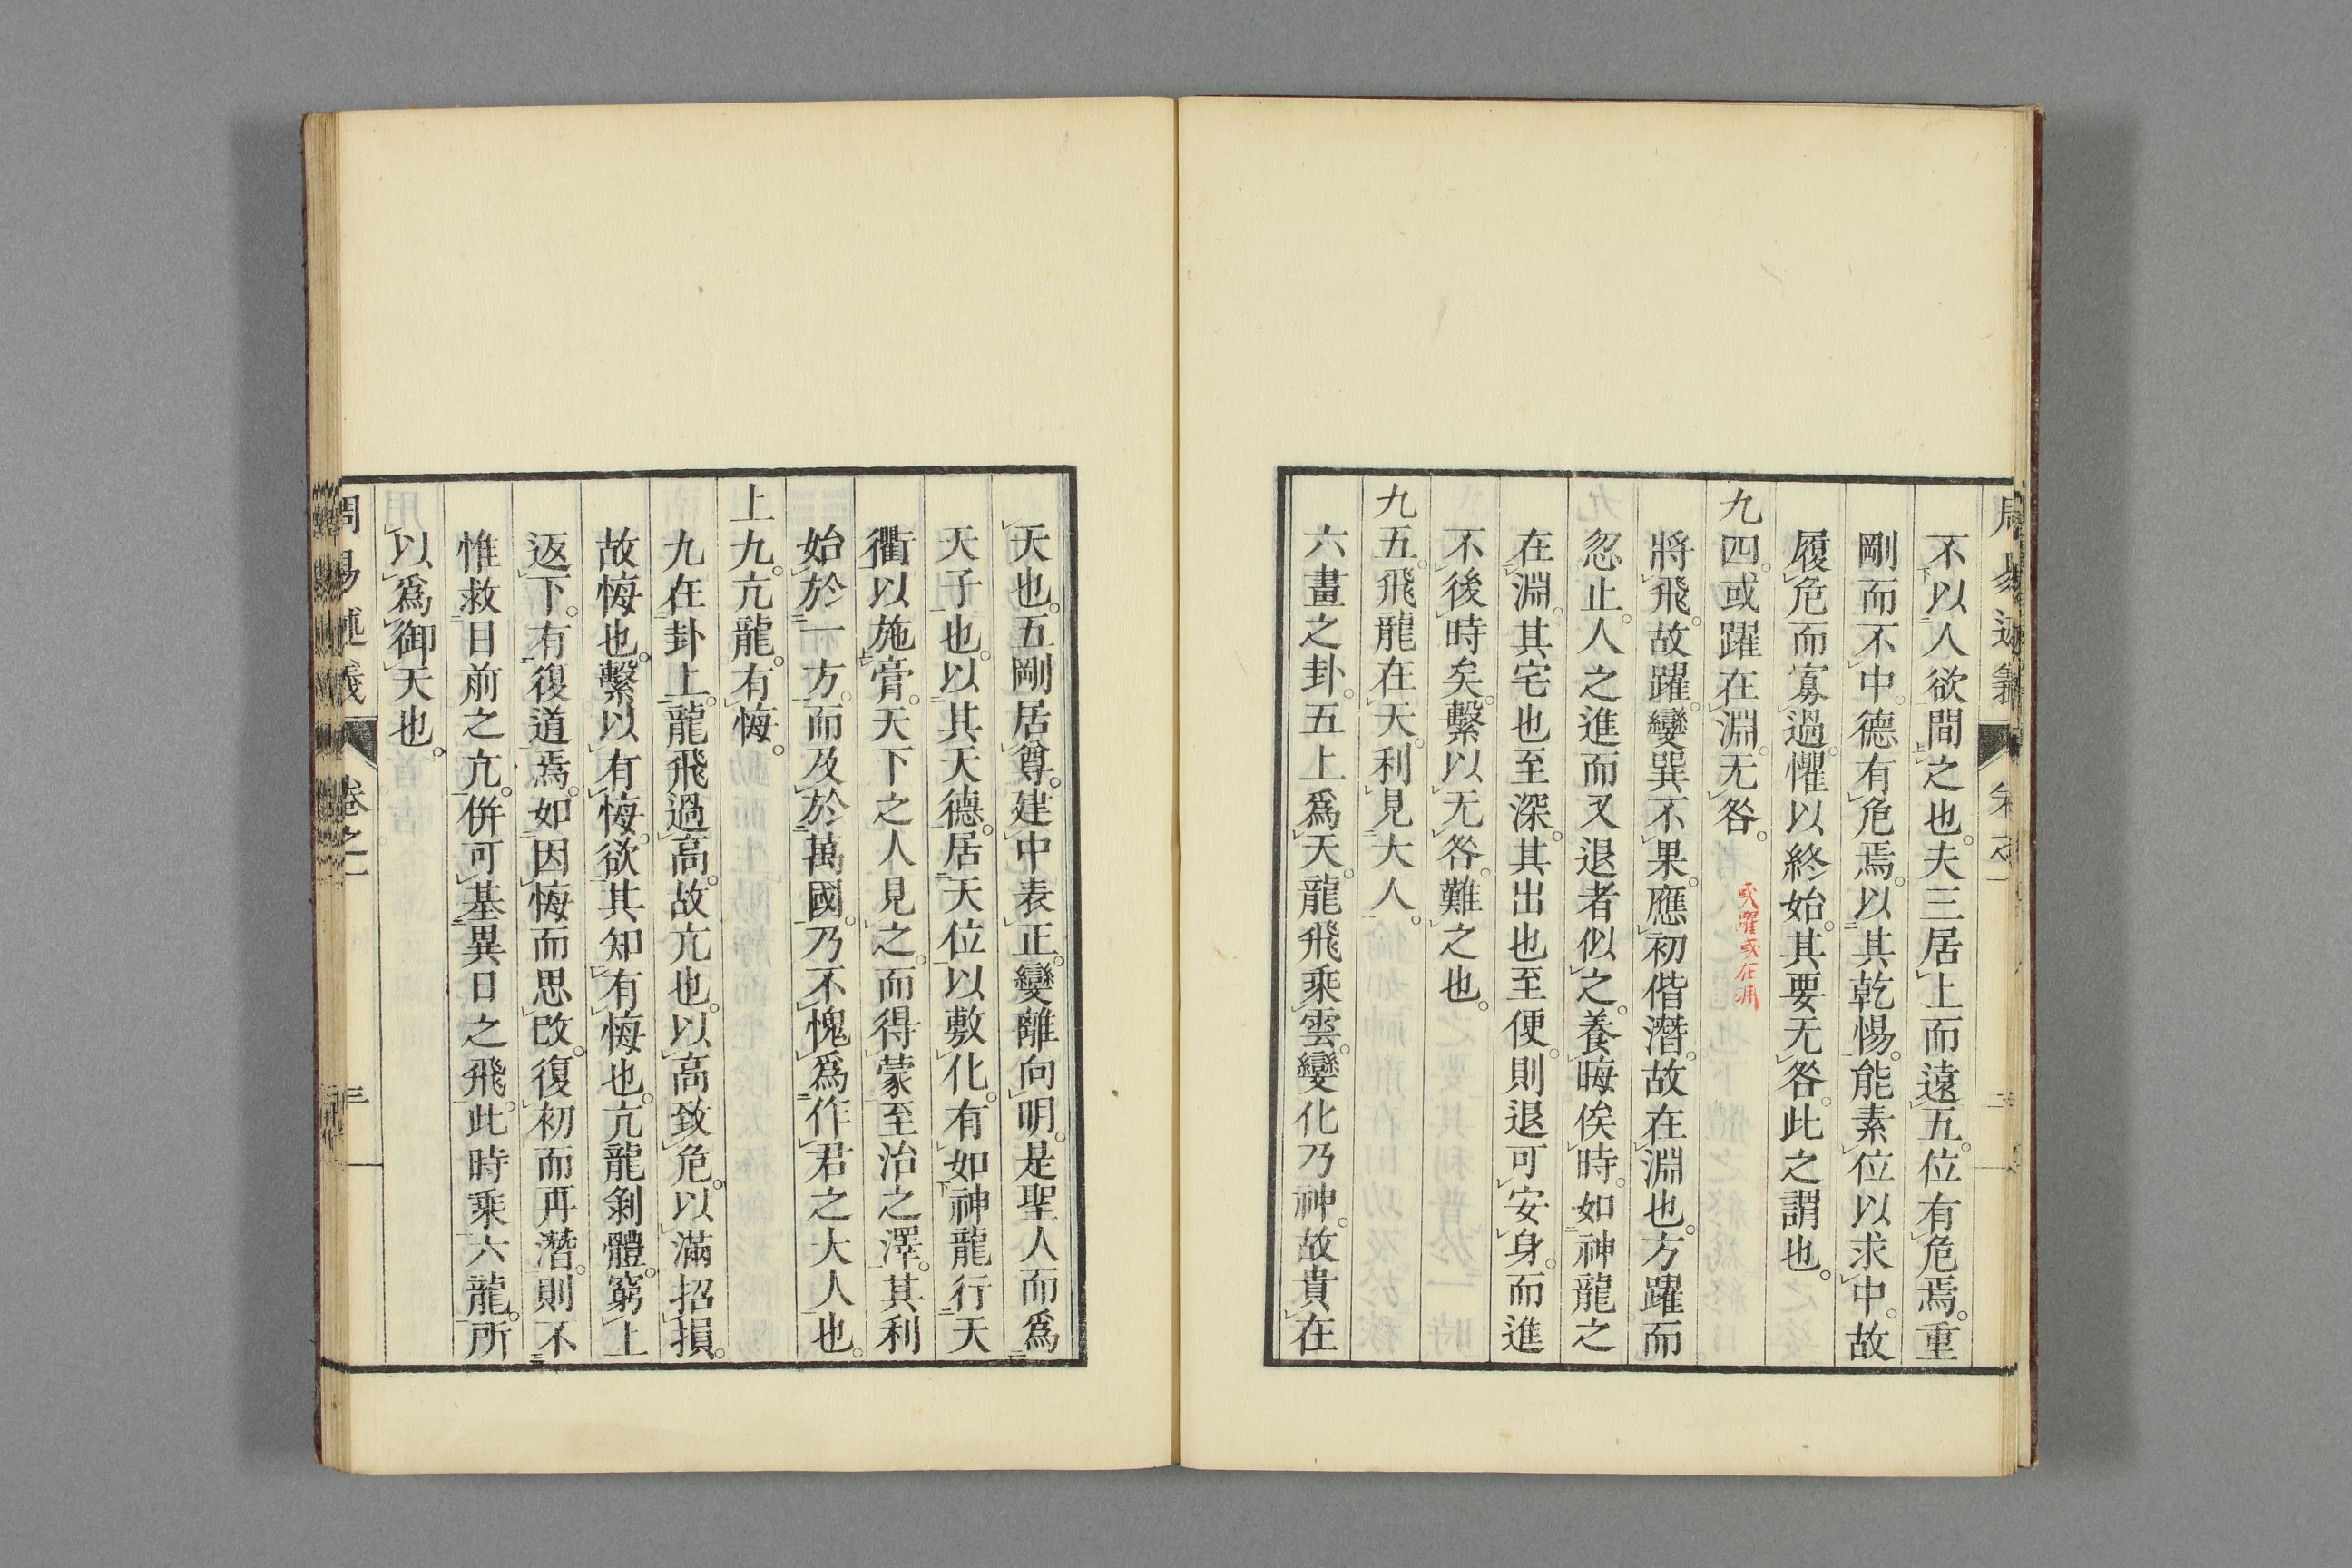 不以人欲間之也。夫三居上而遠五。位有危焉。重
剛而不中。德有危焉。以其乾惕。能素位以求中。故
履危而寡過。懼以終始。其要无咎。此之謂也。
九四。或躍在淵。无咎。
或躍或在淵
將飛。故躍。變巽不果。應初偕潛。故在淵也。方躍而
忽止。人之進而又退者似之。養晦俟時。如神龍之
在淵。其宅也至深。其出也至便。則退可安身。而進
不後時矣。繫以无咎。難之也。
九五。飛龍在天。利見大人。
六畫之卦。五上爲天。龍飛乘雲。變化乃神。故貴在
天也。五剛居尊。建中表正。變離向明。是聖人而爲
天子也。以其天德。居天位以敷化。有如神龍行天
衢以施膏。天下之人見之。而得蒙至治之澤。其利
始於一方。而及於萬國。乃不愧爲作君之大人也。
上九。亢龍。有悔。
九在卦上。龍飛過高。故亢也。以高致危。以滿招損。
故悔也。繫以有悔。欲其知有悔也。亢龍剝體。窮上
返下。有復道焉。如因悔而思改。復初而再潛。則不
惟救目前之亢。併可基異日之飛。此時乘六龍。所
以爲御天也。
周易述義 卷之一 三